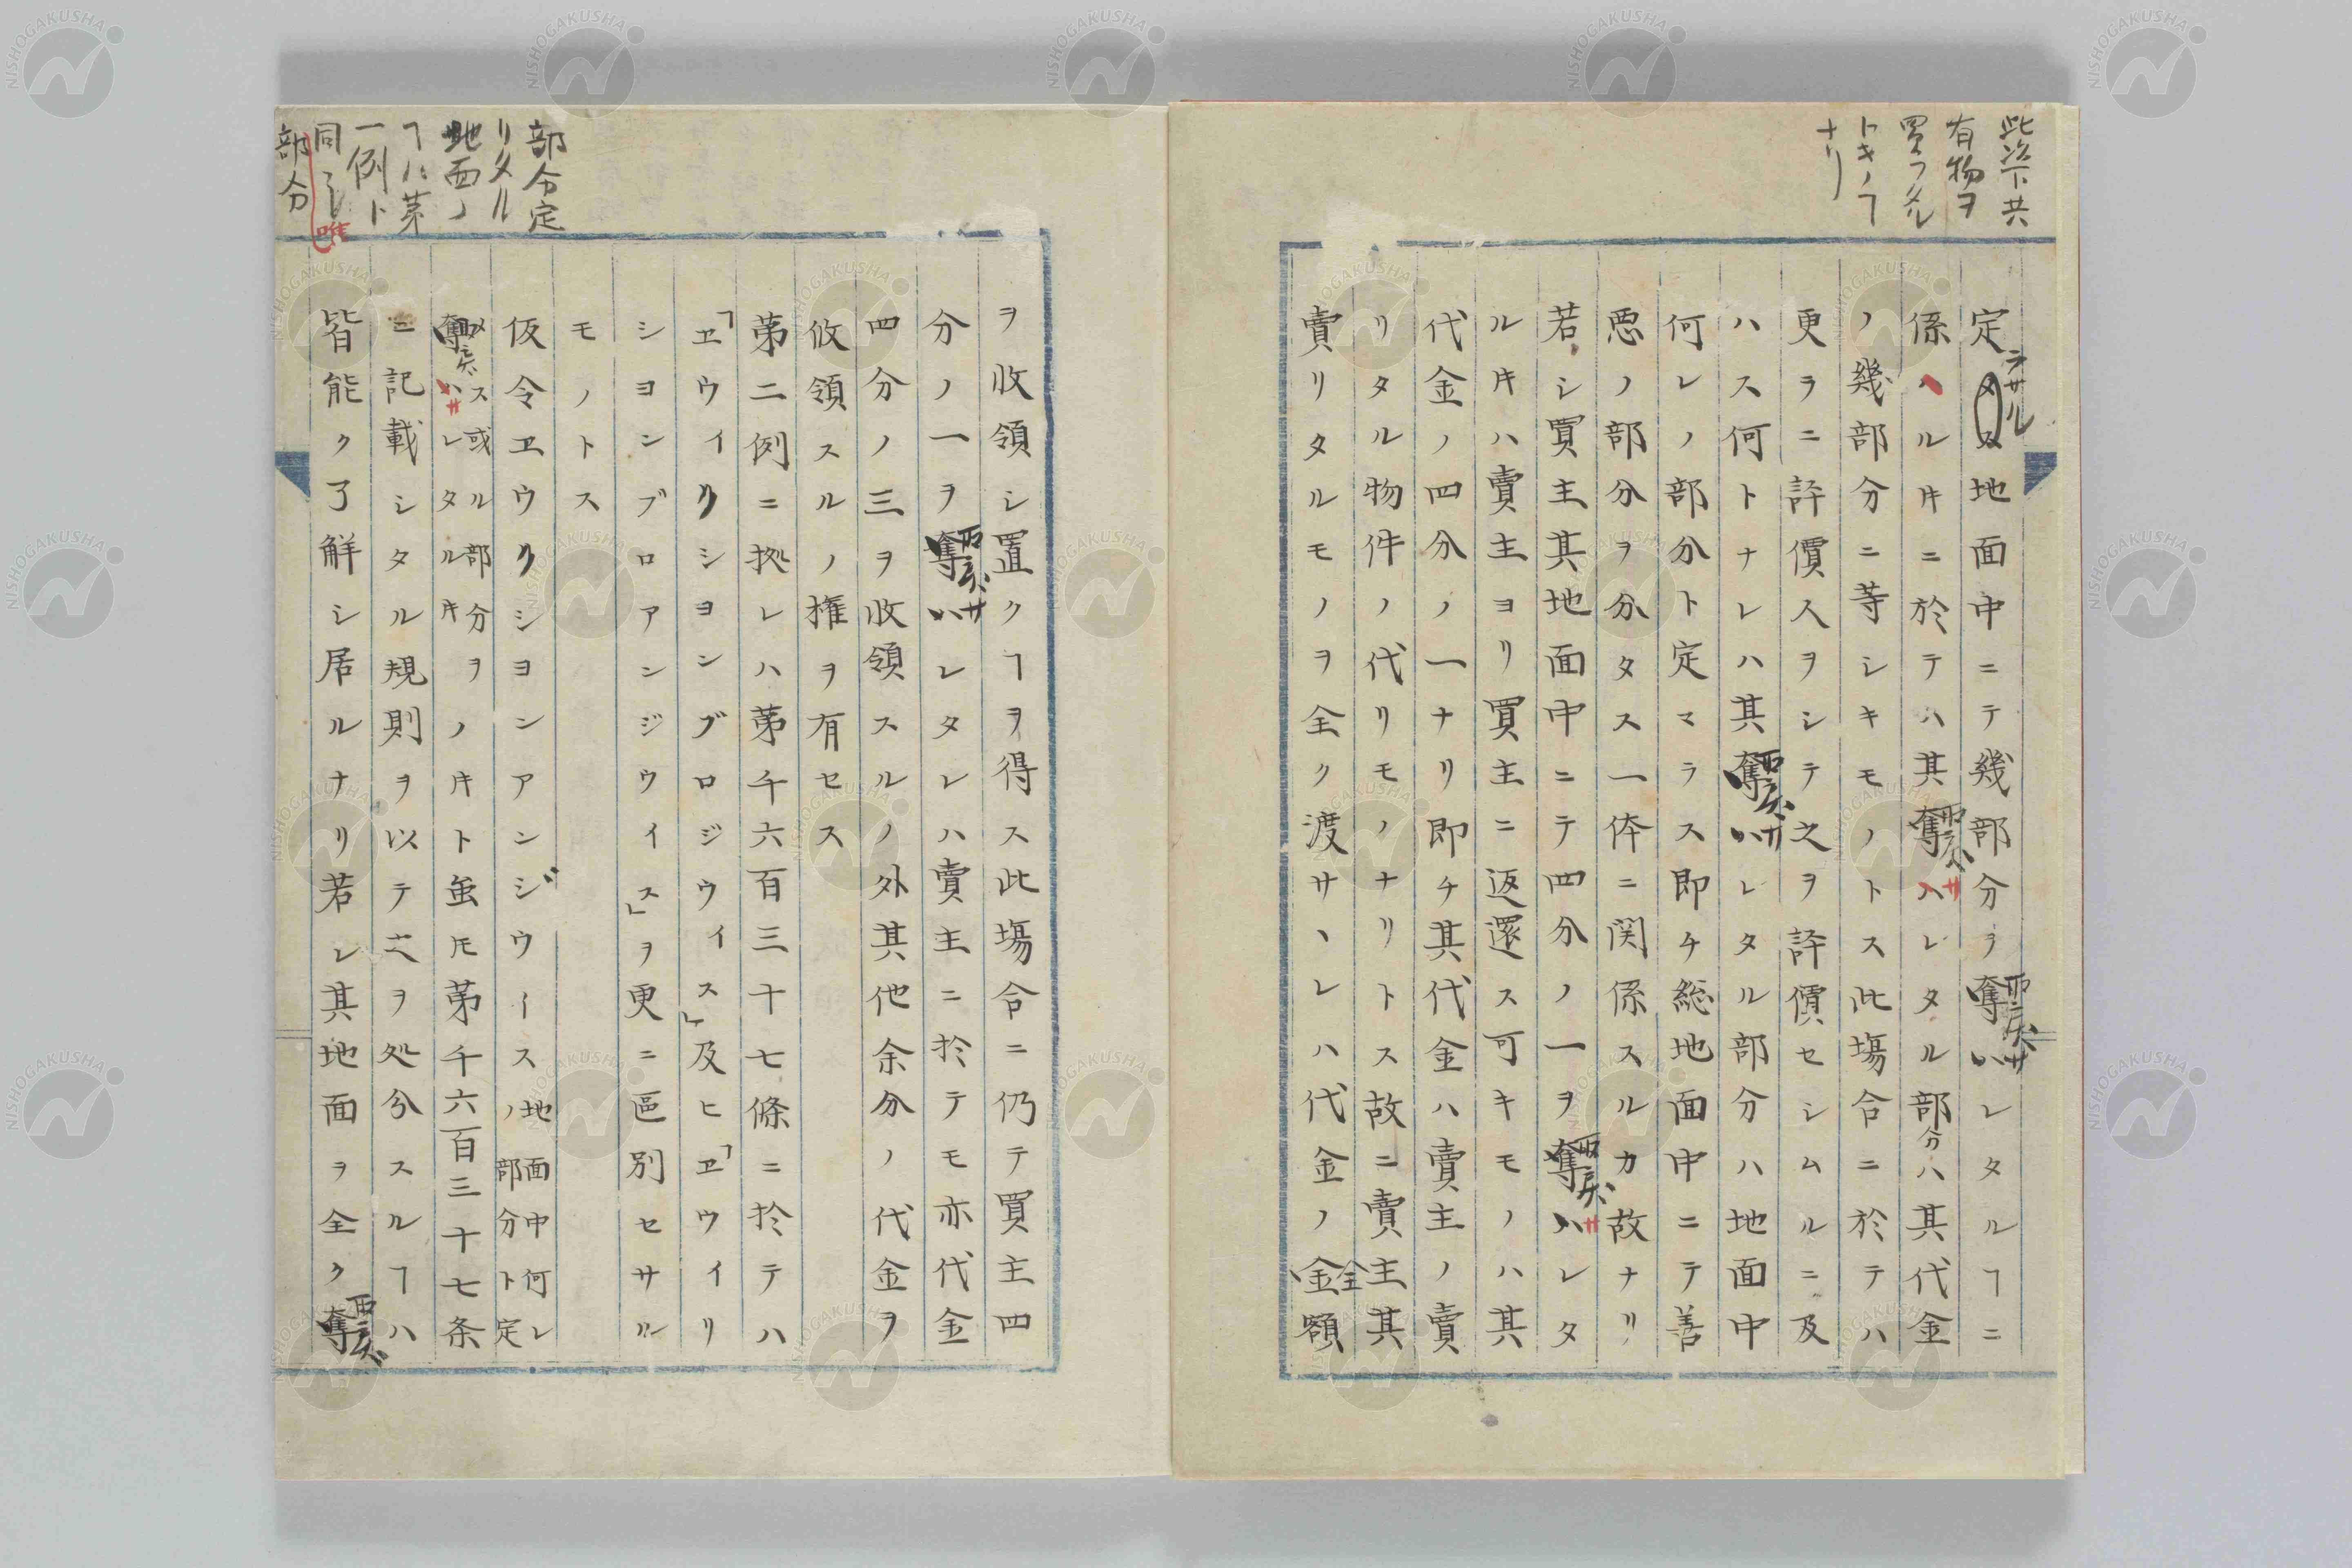 此次下共
有物ヲ
買フタル
トキノヿ
ナリ
定メス地面中ニテ幾部分ヲ奪ハレタルヿニ
ラサル
係ハルキニ於テハ其奪ハレタル部分ハ其代金
ノ幾部分ニ等シキモノトス此塲合ニ於テハ
更ラニ評價人ヲシテ之ヲ評價セシムルニ及
ハス何トナレハ其奪ハレタル部分ハ地面中
何レノ部分ト定マラス即チ総地面中ニテ善
悪ノ部分ヲ分タス一体ニ関係スルカ故ナリ
若シ買主其地面中ニテ四分ノ一ヲ奪ハレタ
ルキハ賣主ヨリ買主ニ返還ス可キモノハ其
代金ノ四分ノ一ナリ即チ其代金ハ賣主ノ賣
リタル物件ノ代リモノナリトス故ニ賣主其
賣リタルモノヲ全ク渡サヽレハ代金ノ金額
全
部分定
リタル
地面ノ
ヿハ苐
一例ト
同シ
唯
部分
ヲ收領シ置クヿヲ得ス此塲合ニ仍テ買主四
分ノ一ヲ奪ハレタレハ賣主ニ於テモ亦代金
四分ノ三ヲ收領スルノ外其他余分ノ代金ヲ
收領スルノ権ヲ有セス
苐二例ニ拠レハ苐千六百三十七條ニ於テハ
「ヱウイクシヨンブロジウイス」及ヒ「ヱウイク
シヨンブロアンジウイス」ヲ更ニ區別セサル
モノトス
仮令ヱウクシヨンアンジウース地面中何レ
ノ部分ト定
メス或ル部分ヲ
奪ハレタルキノキト虽モ苐千六百三十七条
ニ記載シタル規則ヲ以テ之ヲ処分スルヿハ
皆能ク了解シ居ルナリ若レ其地面ヲ全ク奪